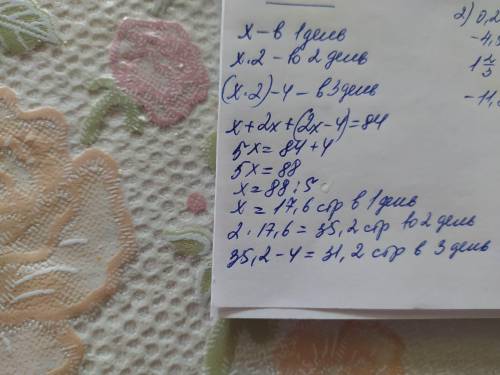 x – в 1 день
x·2 – во 2 день
(x·2)-4 – в 3 день
x+2x+(2x-4)=84
5x=84+4
5x=88
x=88:5
x=17,6 стр в 1 день
2·17,6=35,2 стр во 2 день
35,2-4=31,2 стр в 3 день
2) 0,2
-4,
1
-11,